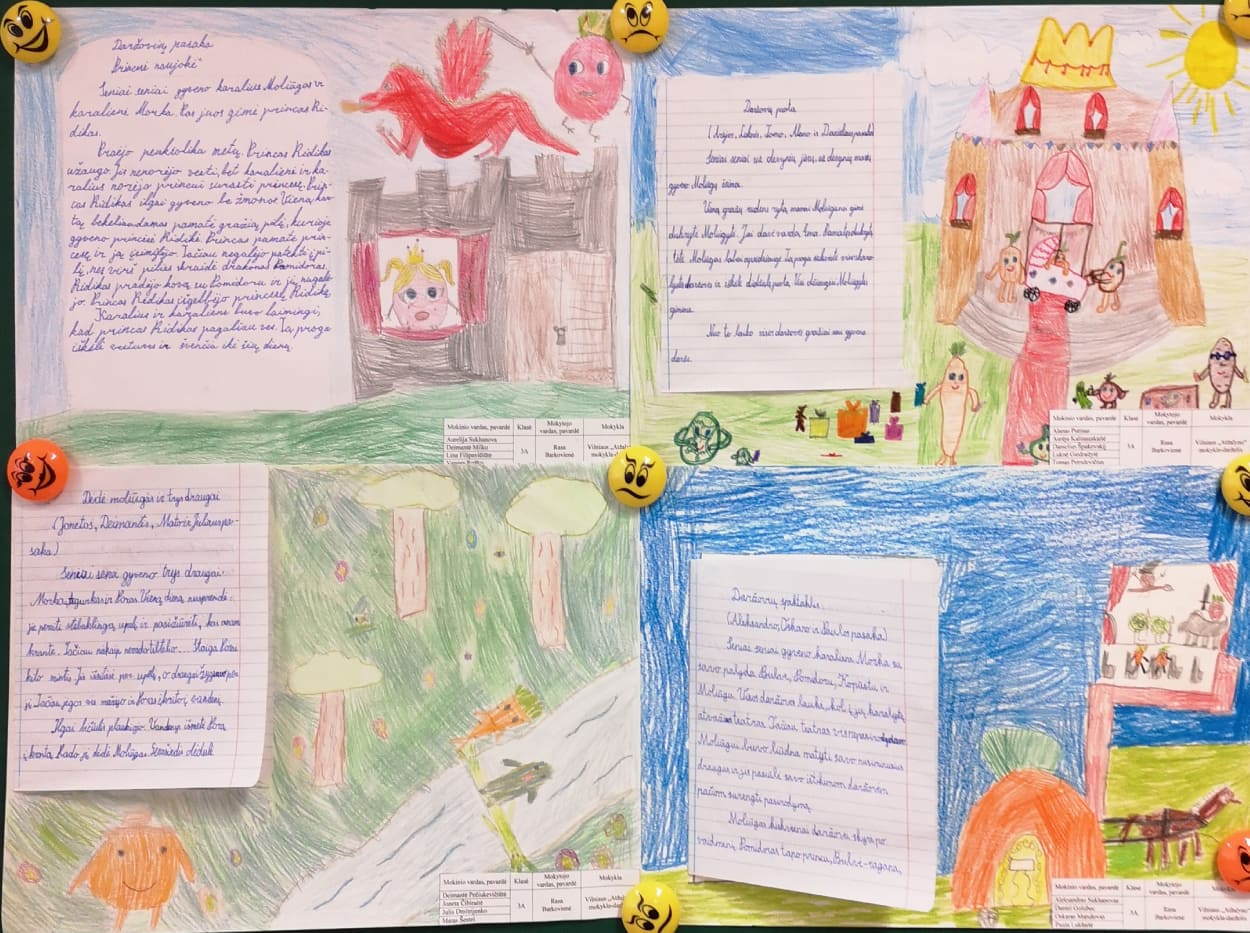 Daržovių pasaka
Princesė naujokė"
Seniai seniai gyveno karalius Moliūgas ir
karalienė Morka. Pas juos gimė princas Ri-
dikas.
Praėjo penkiolika metų. Princas Ridikas
užaugo. Jis nenorėjo vesti, bet karalienė ir ka-
ralius norėjo princui surasti princesę. Prin-
cas Ridikas ilgai gyveno be žmonos. Vieną kar-
tą bekeliaudamas pamatė gražią pilį, kurioje
gyveno princesė Ridikė. Princas pamatė prin-
cesę ir ją įsimylėjo. Tačiau negalėjo patekti į pi-
lį, nes virš pilies skraidė drakonas Pomidoras.
Ridikas pradėjo kovą su Pomidoru ir jį nugalė-
jo. Princas Ridikas išgelbėjo princesę Ridikę.
Karalius ir karalienė buvo laimingi,
kad princas Ridikas pagaliau ves. Ta proga
iškėlė vestuves ir švenčia iki šių dienų.
Mokinio vardas, pavardė Klasė Mokytojo vardas, pavardė Mokykla
Aurelija Sukhanova
Deimantė Milko
Lina Filipavičiūtė
3A Rasa Barkovienė
Daržovių puota
Luknės, Tomo, ir
Seniai seniai už devynių jūrų, už devynių marių
gyveno Moliūgų šeima.
Vieną gražų rudens rytą mamai Moliūgienei gimė
dukrytė Moliūgytė. Jai davė vardą
tėtis Moliūgas labai apsidžiaugė. Ta proga sukvietė visas darzo
daržoves ir iškėlė didžiulę puotą. Visi džiaugėsi Moliūgytės
gimimu.
Nuo to laiko visos daržovės gražiai sau gyvena
darže.
Mokinio vardas, pavardė Klasė Mokytojo vardas, pavardė Mokykla
3A Rasa Barkovienė Vilniaus „Atžalyno" mokykla-darželis
Dėdė moliūgas ir trys draugai
(Janetos, Deimantės, Mato ir Juliaus pa-
saka)
Seniai seniai gyveno trys draugai:
Morka, Agurkas ir Poras. Vieną dieną nusprendė
jie pereiti stebuklingą upelį ir pasižiūrėti, kas anam
krante. Tačiau niekaip nerado tiltelio. Staiga Porui
kilo mintis. Jis išsitiesė per upelį, o draugai žygiavo per
jį. Tačiau jėgos visi ir Poras įkrito į vandenį.
Ilgai bičiulis plaukiojo. Vanduo išmetė Porą
į krantą. Rado jį dėdė Moliūgas.
Mokinio vardas, pavardė Klasė Mokytojo vardas, pavardė Mokykla
Deimantė
Janeta Čibiraitė
Julia Dmitrijenko
Matas Šestel
3A Rasa Barkovienė Vilniaus „Atžalyno" mokykla-darželis
Daržovių spektaklis
(Aleksandro, Oskaro ir Paulos pasaka)
Seniai seniai gyveno karalienė Morka su
savo palyda: Bulve, Pomidoru, Kopūstu ir
Moliūgu. Visos daržovės laukė, kol į jų karalystę
atvažiuos teatras. Tačiau teatras vis nepasirodydavo.
Moliūgui buvo liūdna matyti savo nusiminusius
draugus ir jis pasiūlė savo ištikimom daržovėm
pačiom surengti pasirodymą.
Moliūgas kiekvienai daržovei skyrė po
vaidmenį. Pomidoras tapo princu, Bulvė-ragana,
Mokinio vardas, pavardė Klasė Mokytojo vardas, pavardė Mokykla
Aleksandras Sukhanovas
3A Rasa Barkovienė Vilniaus „Atžalyno" mokykla-darželis